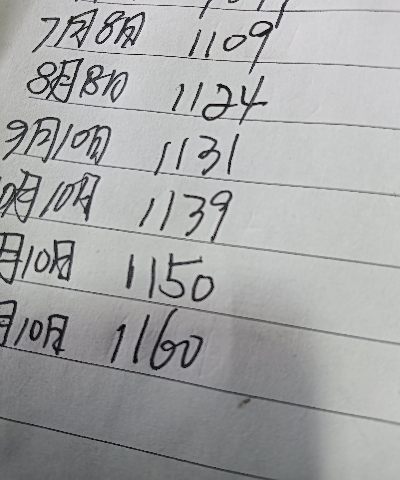 7月8日 1109
8月8日 1124
9月10日 1131
10月10日 1139
月10日 1150
月10日 1160